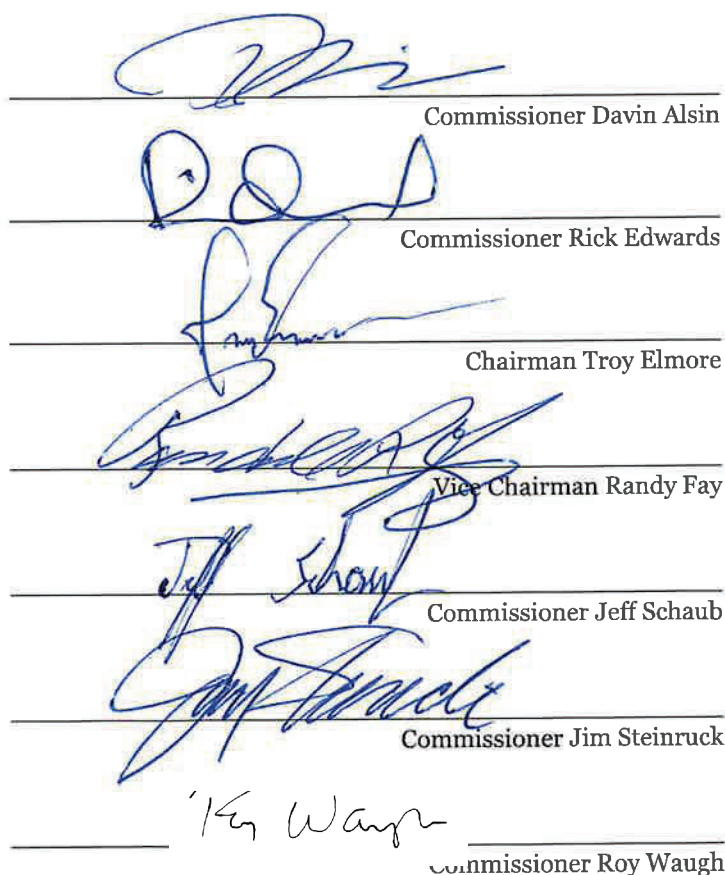 Commissioner Davin Alsin
Commissioner Rick Edwards
Chairman Troy Elmore
Vice Chairman Randy Fay
Jeff Schaub
Commissioner Jeff Schaub
Commissioner Jim Steinruck
Roy Waugh
Commissioner Roy Waugh